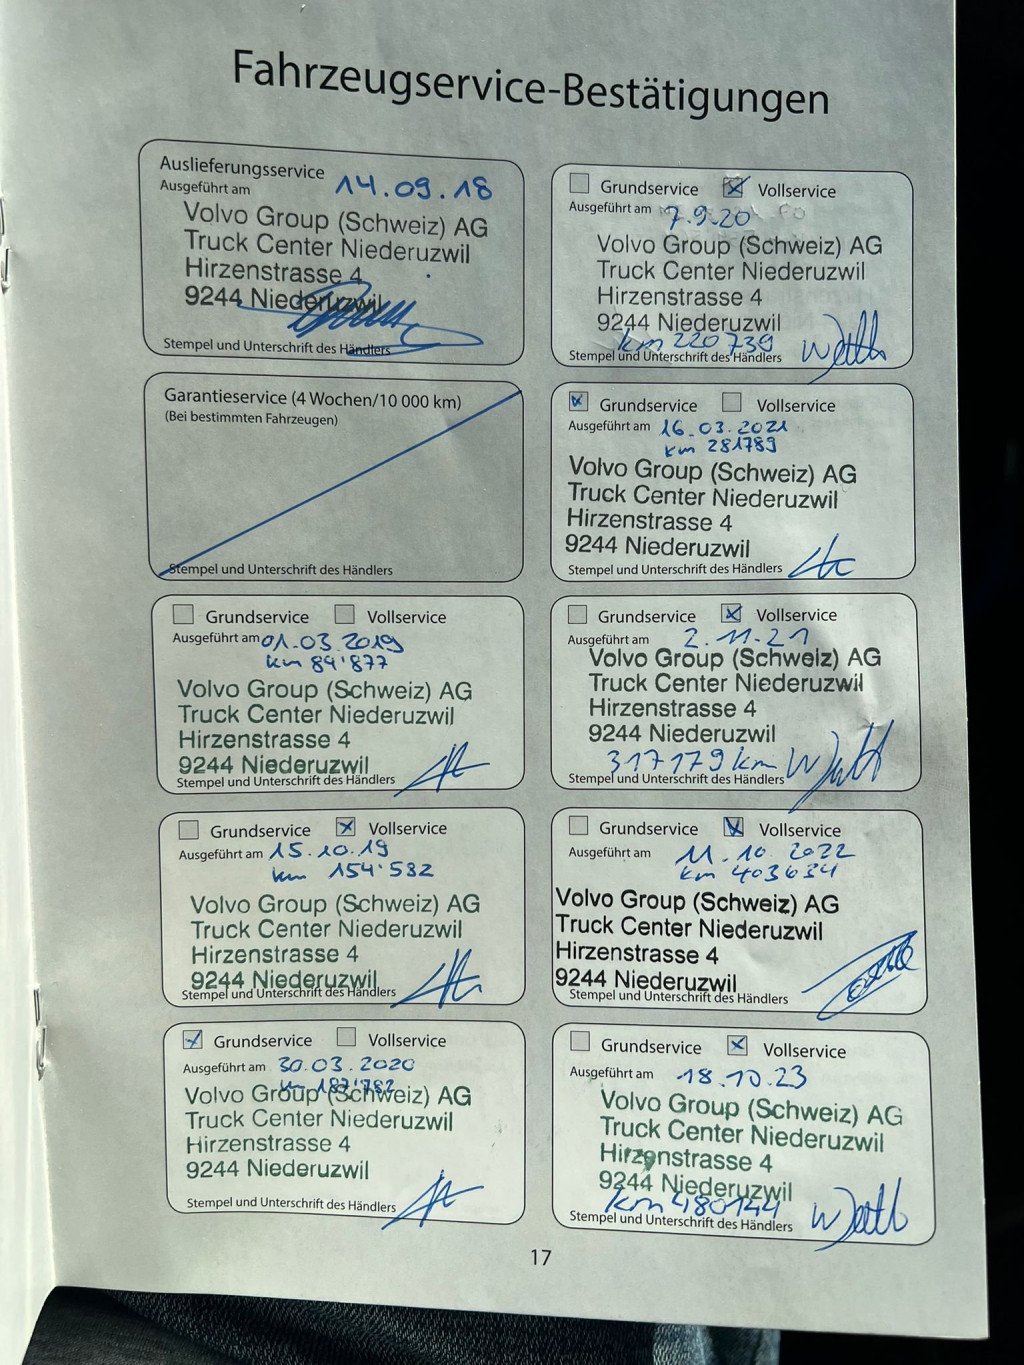 Fahrzeugservice-Bestätigungen
Auslieferungsservice
Ausgeführt am 14.09.18
Volvo Group (Schweiz) AG
Truck Center Niederuzwil
Hirzenstrasse 4
9244 Niederuzwil
Stempel und Unterschrift des Händlers
Garantieservice (4 Wochen/10 000 km)
(Bei bestimmten Fahrzeugen)
Stempel und Unterschrift des Händlers
Grundservice Vollservice
Ausgeführt am 01.03.2019
km 89'877
Volvo Group (Schweiz) AG
Truck Center Niederuzwil
Hirzenstrasse 4
9244 Niederuzwil
Stempel und Unterschrift des Händlers
Grundservice Vollservice
Ausgeführt am 15.10.19
km 154'582
Volvo Group (Schweiz) AG
Truck Center Niederuzwil
Hirzenstrasse 4
9244 Niederuzwil
Stempel und Unterschrift des Händlers
Grundservice Vollservice
Ausgeführt am 30.03.2020
km 187'782
Volvo Group (Schweiz) AG
Truck Center Niederuzwil
Hirzenstrasse 4
9244 Niederuzwil
Stempel und Unterschrift des Händlers
Grundservice Vollservice
Ausgeführt am 7.9.20
Volvo Group (Schweiz) AG
Truck Center Niederuzwil
Hirzenstrasse 4
9244 Niederuzwil
km 220739
Stempel und Unterschrift des Händlers
Grundservice Vollservice
Ausgeführt am 16.03.2021
km 281789
Volvo Group (Schweiz) AG
Truck Center Niederuzwil
Hirzenstrasse 4
9244 Niederuzwil
Stempel und Unterschrift des Händlers
Grundservice Vollservice
Ausgeführt am 2.11.21
Volvo Group (Schweiz) AG
Truck Center Niederuzwil
Hirzenstrasse 4
9244 Niederuzwil
317179 km
Stempel und Unterschrift des Händlers
Grundservice Vollservice
Ausgeführt am 11.10.2022
km 403634
Volvo Group (Schweiz) AG
Truck Center Niederuzwil
Hirzenstrasse 4
9244 Niederuzwil
Stempel und Unterschrift des Händlers
Grundservice Vollservice
Ausgeführt am 18.10.23
Volvo Group (Schweiz) AG
Truck Center Niederuzwil
Hirzenstrasse 4
9244 Niederuzwil
km 480144
Stempel und Unterschrift des Händlers
17